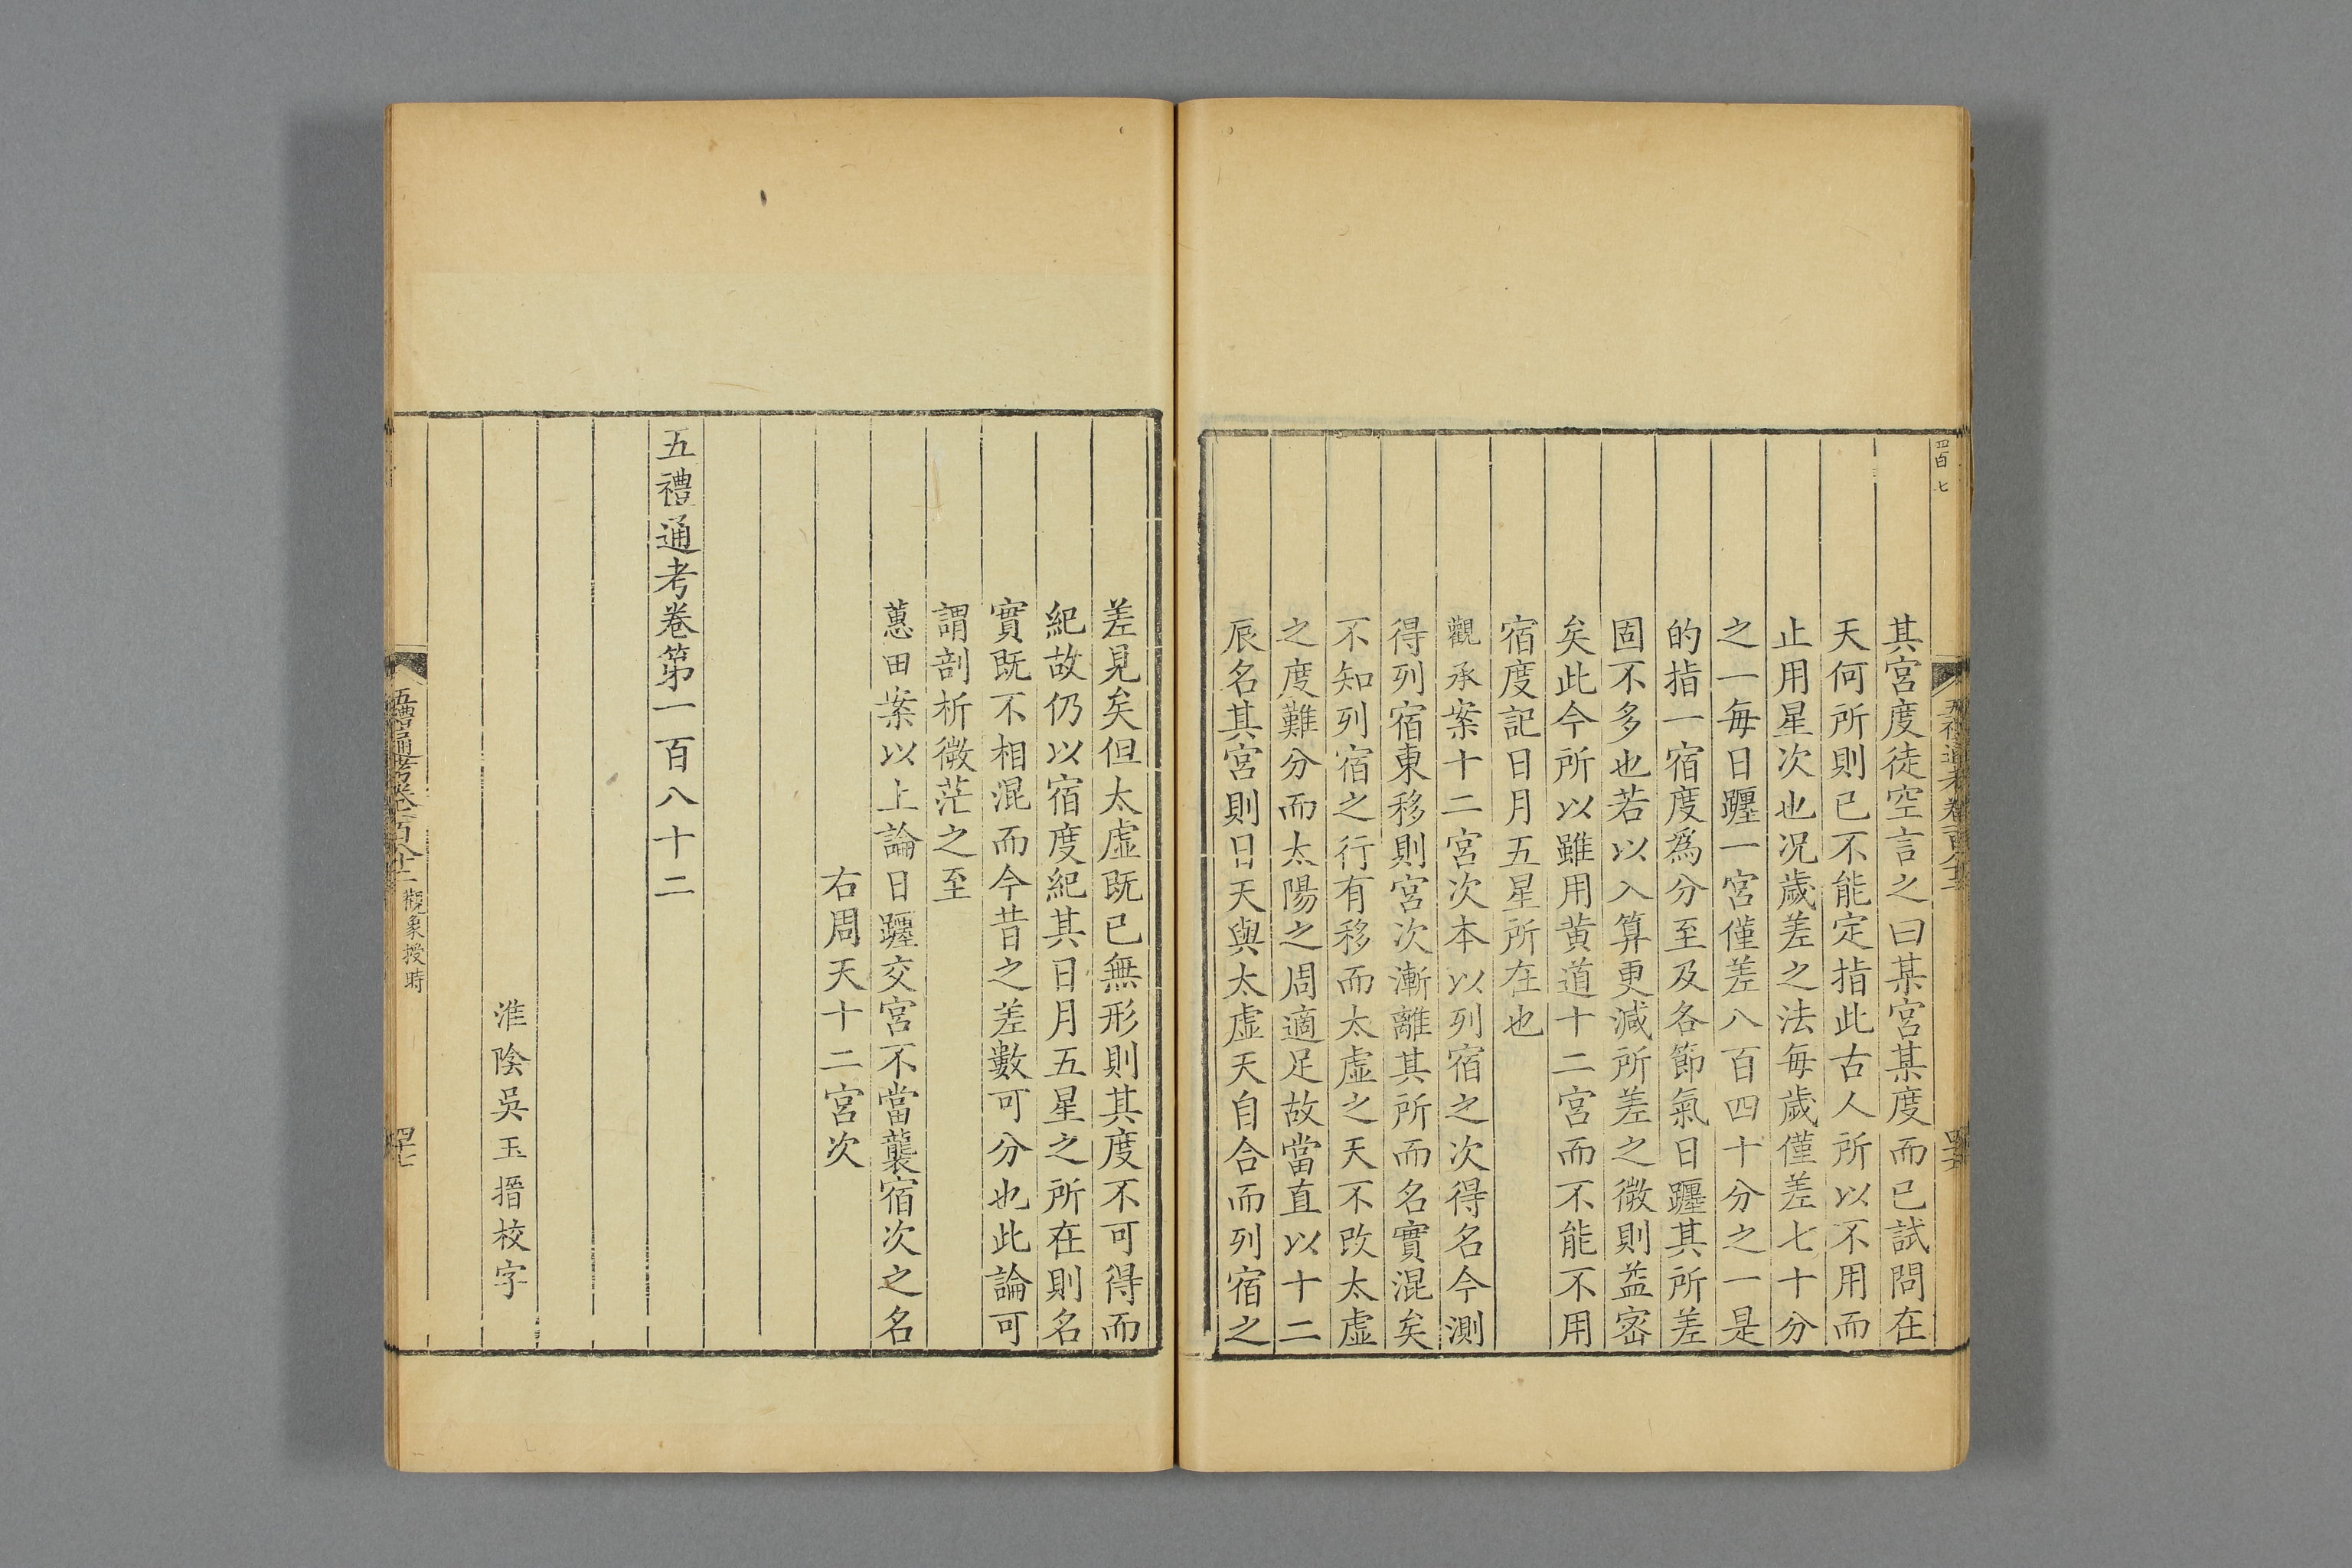 其宮度徒空言之曰某宮某度而已試問在
天何所則已不能定指此古人所以不用而
止用星次也况歲差之法每歲僅差七十分
之一每日躔一宮僅差八百四十分之一是
的指一宿度爲分至及各節氣日躔其所差
固不多也若以入算更減所差之微則益密
矣此今所以雖用黄道十二宮而不能不用
宿度記日月五星所在也
觀承案十二宮次本以列宿之次得名今測
得列宿東移則宮次漸離其所而名實混矣
不知列宿之行有移而太虛之天不改太虛
之度難分而太陽之周適足故當直以十二
辰名其宮則日天與太虛天自合而列宿之
差見矣但太虛既已無形則其度不可得而
紀故仍以宿度紀其日月五星之所在則名
實既不相混而今昔之差數可分也此論可
謂剖析微茫之至
蕙田案以上論日躔交宮不當襲宿次之名
右周天十二宮次
五禮通考卷第一百八十二
淮陰吳玉搢校字
五禮通考卷一百八十二 觀象授時
四十七